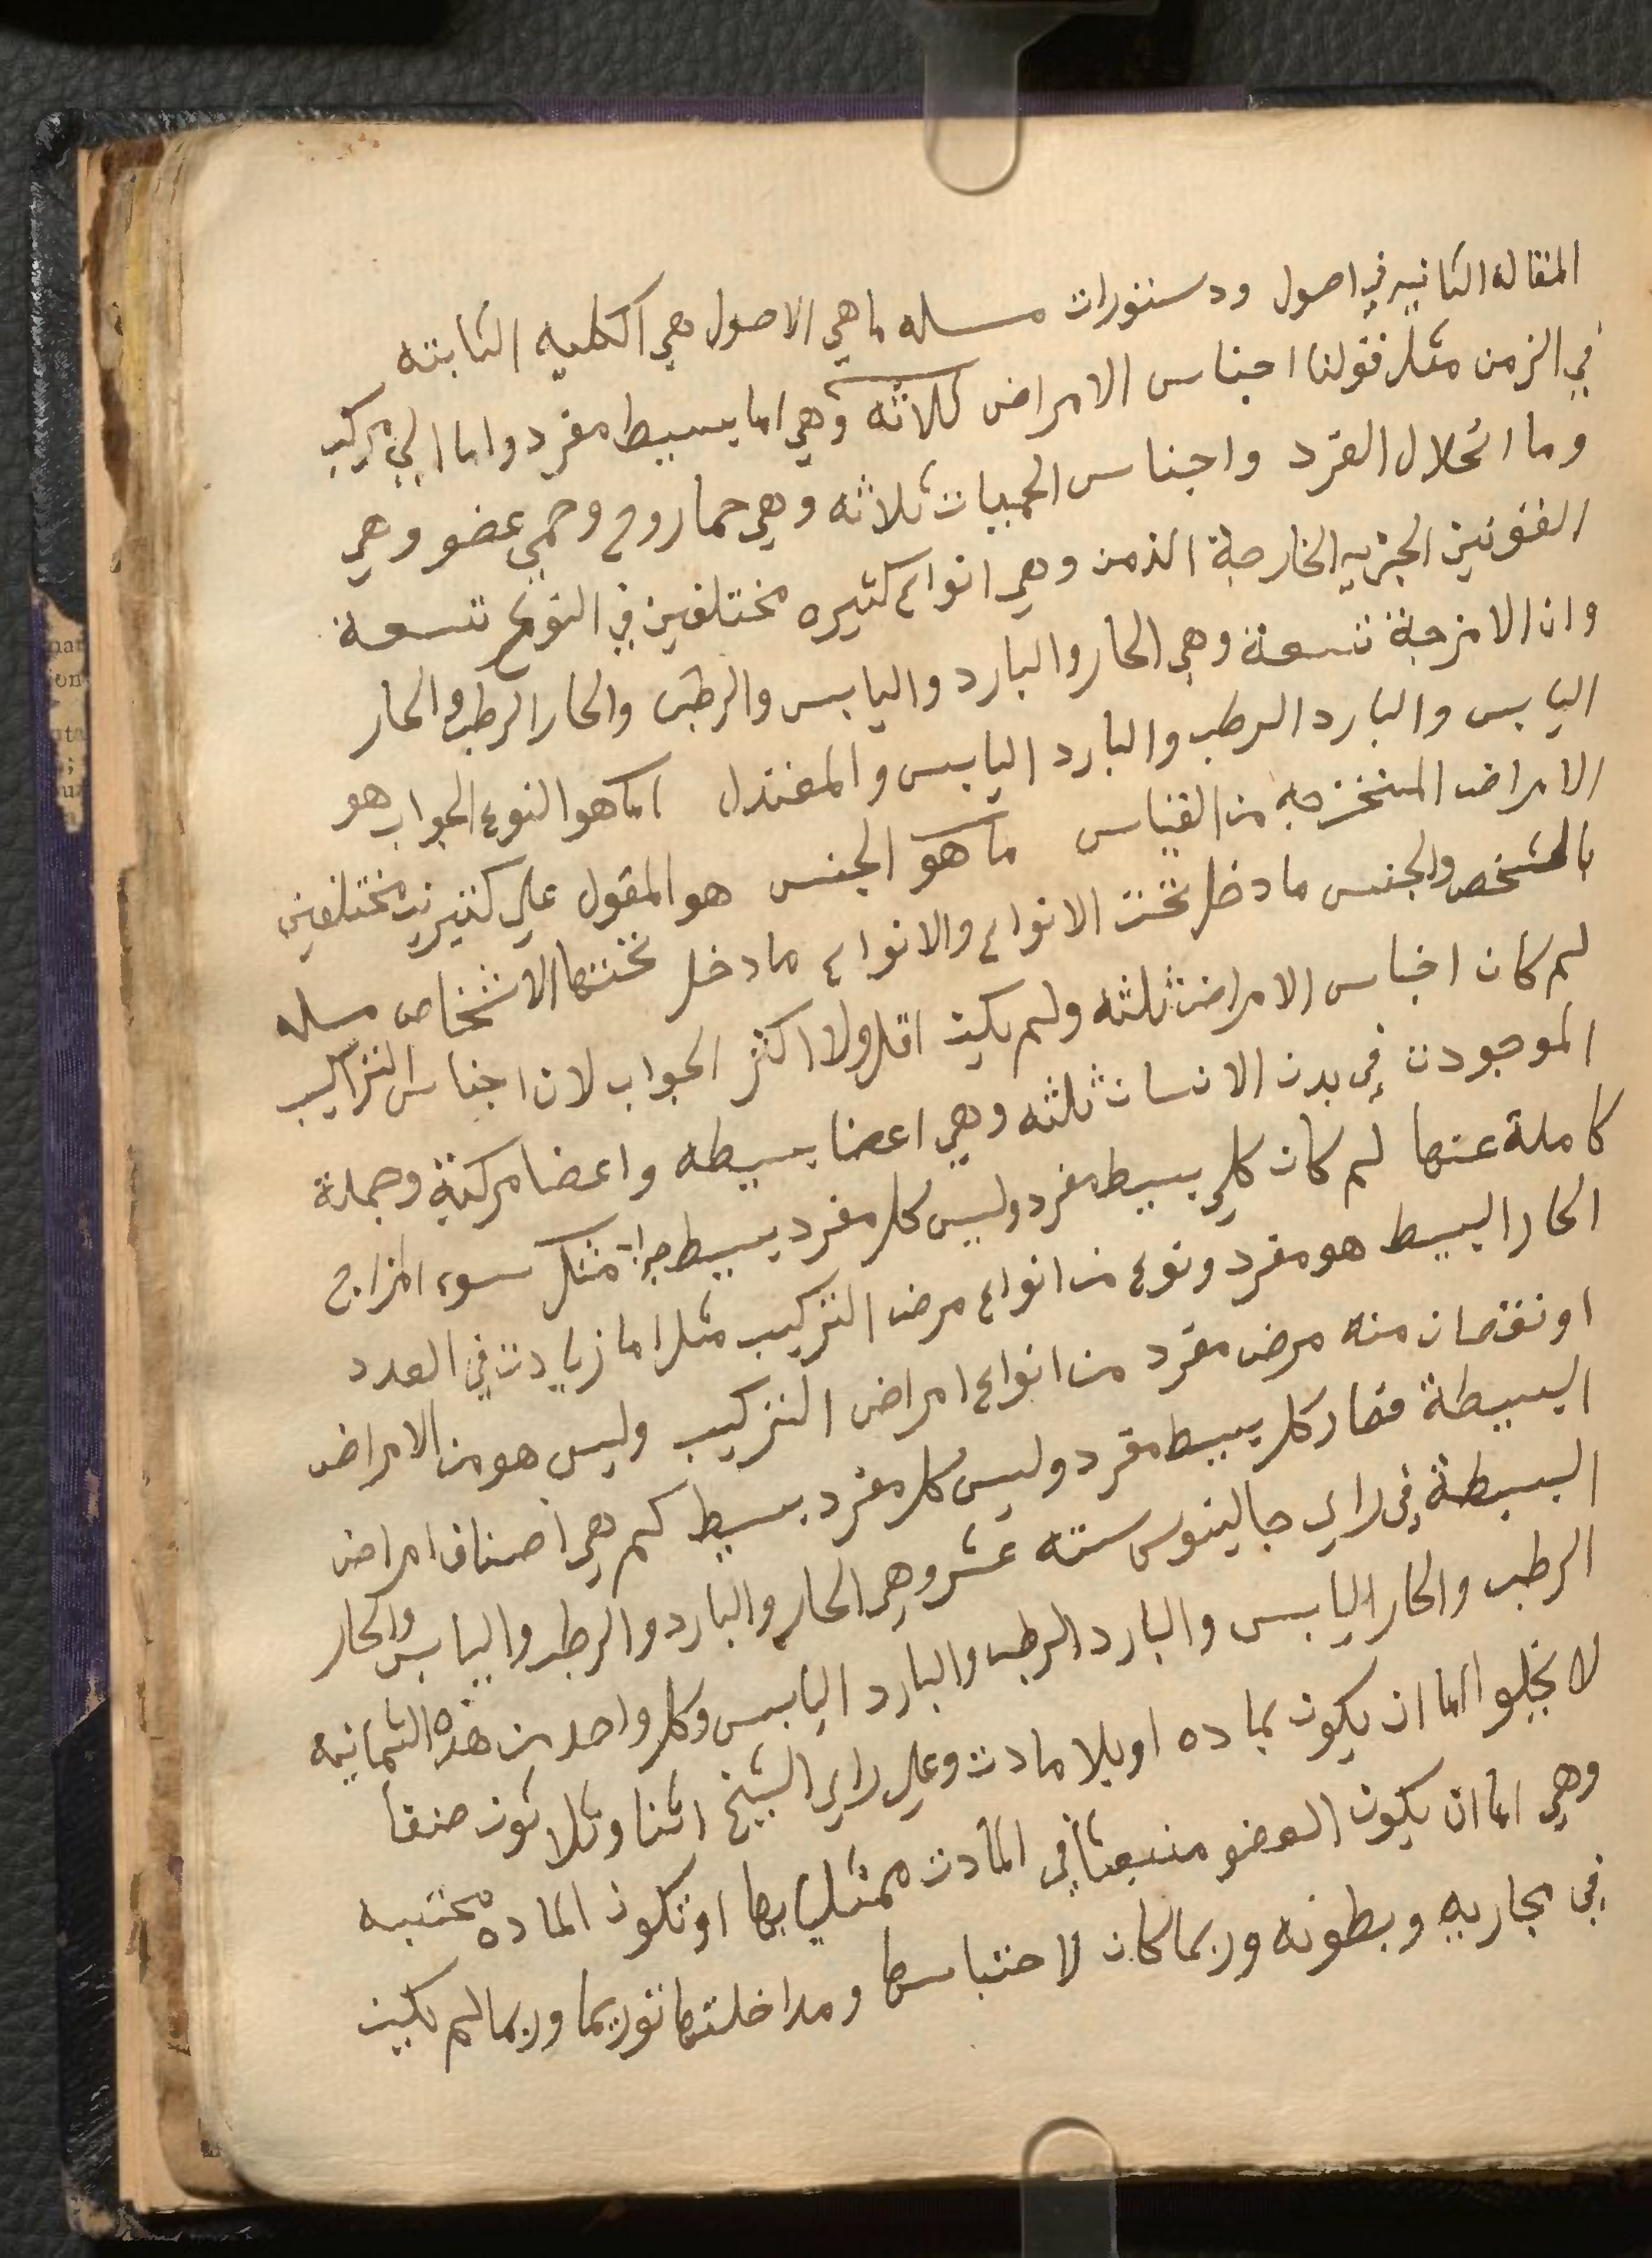 المقاله الثانيه في اصول ودستورات مسله ما هي الاصول هي الكليه الثابته
في الزمن مثل قولنا اجناس الامراض ثلاثه وهي اما بسيط مفرد واما الي مركب
وما انحلال الفرد واجناس الحميات ثلاثه وهي حما روح وحمي عضو وهي
الجزيه الخارجة الذمن وهي انواع كثيره مختلفين في النوع تسعة
وان الامزجة تسعة وهي الحار والبارد واليابس والرطب والحار الرطب والحار
اليابس والبارد الرطب والبارد اليابس والمعتدل اما هو النوع الجواب هو
الامراض من القياس ما هو الجنس هو المقول علي كثيرين مختلفين
بالشخص والجنس ما دخل تحت الانواع والانواع ما دخل تحتها الاشخاص مسله
لم كان اجناس الامراض ثلثه ولم يكن اقل ولا اكثر الجواب لان اجناس التراكيب
الموجودت في بدن الانسان ثلثه وهي اعضا بسيطه واعضا مركبة وجملة
كاملة عنها لم كان كلي بسيط مفرد وليس كل مفرد بسيط مثل سوء المزاج
الحار البسيط هو مفرد ونوع من انواع مرض التركيب مثل اما زيادت في العدد
او نقصان منه مرض مفرد من انواع امراض التركيب وليس هو من الامراض
البسيطة فصار كل بسيط مفرد وليس كل مفرد بسيط كم هي اصناف امراض
البسيطة في راي جالينوس سته عشر وهي الحار والبارد والرطب واليابس والحار
الرطب والحار اليابس والبارد الرطب والبارد اليابس وكل واحد من هذه الثمانيه
لا يخلوا اما ان يكون بماده او بلا مادت وعلي راي الشيخ اثنا وثلاثون صنفا
وهي اما ان يكون العضو في المادت بها او تكون الماده محتبسه
في مجاريه وبطونه وربما كان لاحتباسها ومداخلتها توريما وربما لم يكن